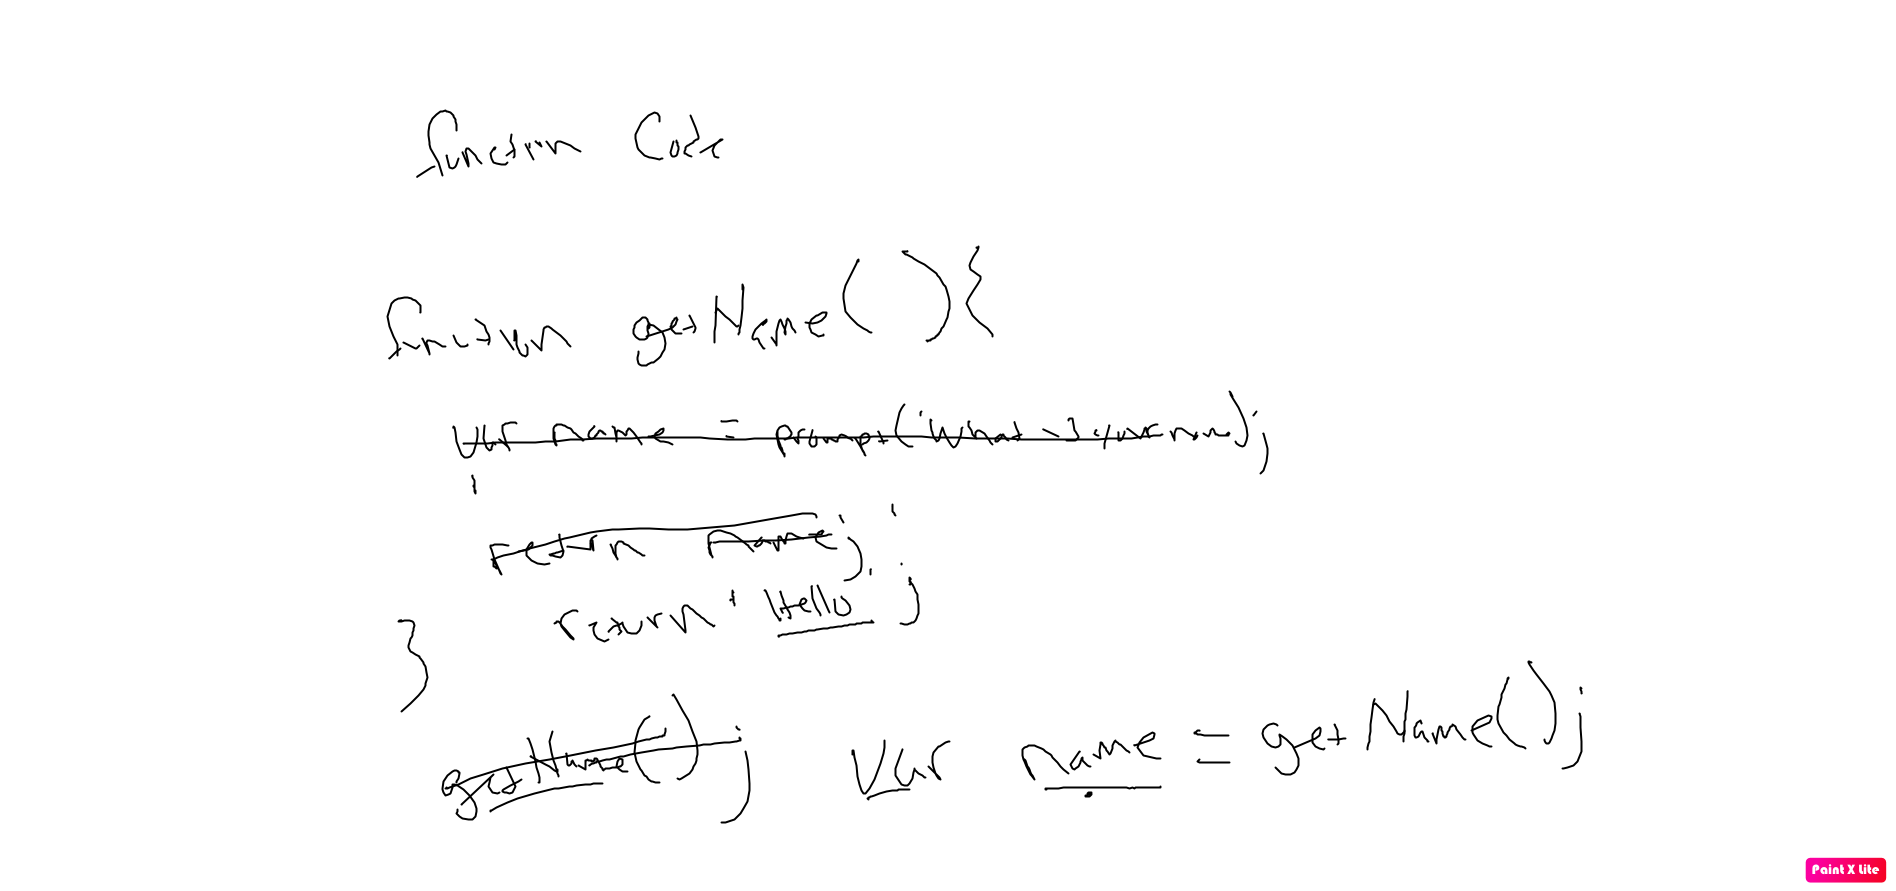 function Code
function getName(){
var name = prompt('What is your name');
return name;
return 'Hello';
}
getName(); var name = getName();
Paint X Lite